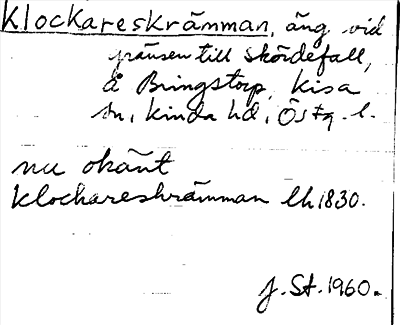 Klockareskrämman, äng vid
gränsen till Skördefall,
å Bringstorp, Kisa
sn, Kinda hd, Östg. l.
nu okänt
Klockareskrämman lh 1830.
J. St. 1960.